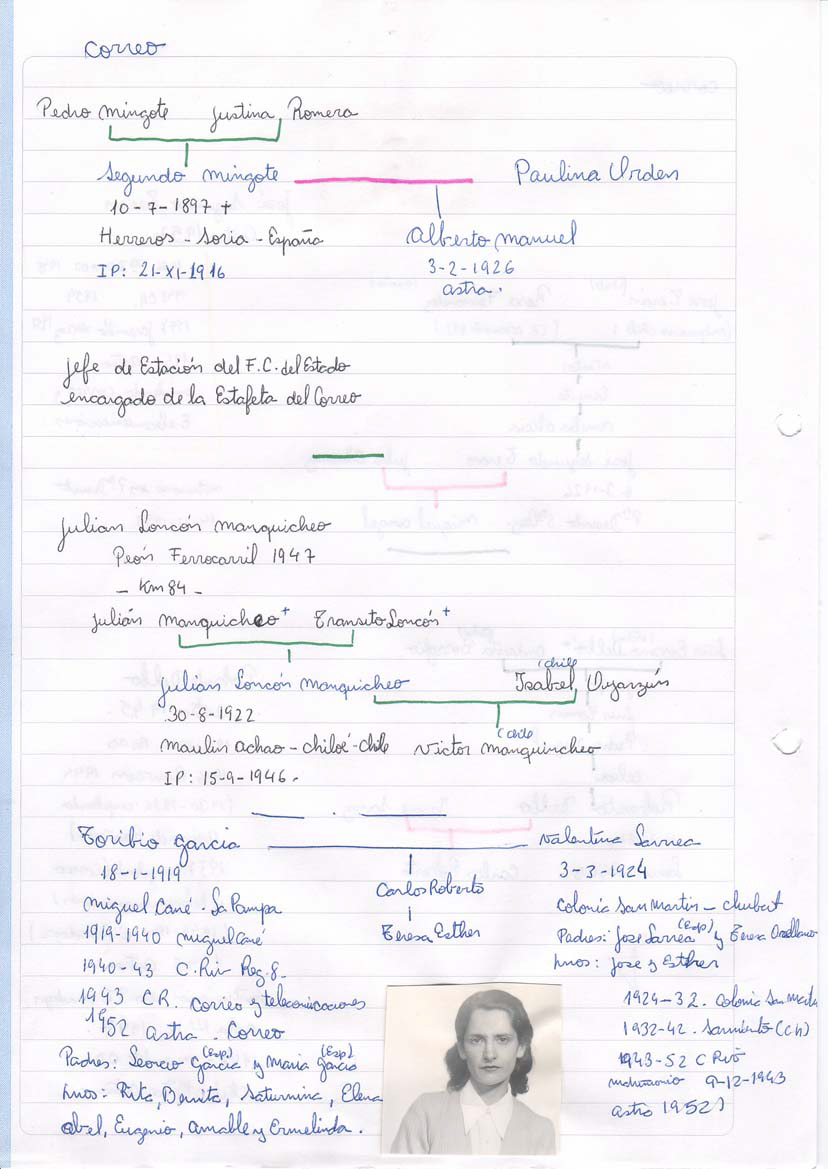 Correo
Pedro Mingote Justina Romera
Segundo Mingote Paulina Urden
10-7-1897 +
Herreros - Soria - España Alberto Manuel
IP: 21-XI-1916 3-2-1926
Astra.
Jefe de Estación del F.C. del Estado
encargado de la Estafeta del Correo
Julian Loncón Manquicheo
Peón Ferrocarril 1947
- Km 84 -
Julián Manquicheo + Transito Loncón +
(chile
Julián Loncón Manquicheo Isabel Oyarzún
30-8-1922
(chile
Maulin Achao - chiloé - chile Victor Manquincheo
IP: 15-9-1946.
Toribio Garcia Valentina Larrea
18-1-1919 3-3-1924
Carlos Roberto
Miguel Cané - La Pampa Colonia San Martin - Chubut
1919-1940 Miguel Cané Teresa Esther Padres: Jose Larrea (Esp) y Teresa
1940-43 C. Riv Reg. 8 hnos: Jose y Esther
1943 C R. Correo y telecomicaciones 1924-32. Colonia San Martin
1952 Astra. Correo 1932-42. Sarmiento (Ch)
1943-52 C Riv
Padres: Garcia (Esp) y Maria Garcia (Esp)
9-12-1943
hnos: Rita, Benita, Saturnina, Elena Astra 1952)
Abel, Eugenio, Amable y Ermelinda.